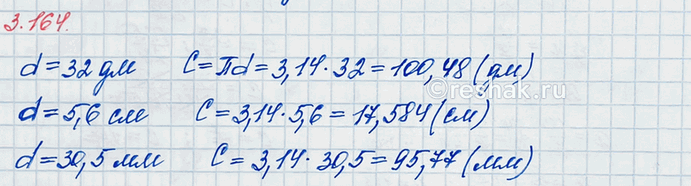 3.164.
d = 32 дм C = πd = 3,14 · 32 = 100,48 (дм)
d = 5,6 см C = 3,14 · 5,6 = 17,584 (см)
d = 30,5 мм C = 3,14 · 30,5 = 95,77 (мм)
reshak.ru